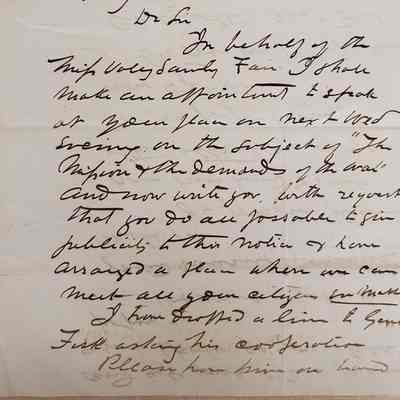 Dr Sir
In behalf of the
Miss Valley Sanity Fair I shall
make an appointment to speak
at your place on next Wed
evening on the subject of "The
Mission & the demands of the War"
and now write you with request
that you do all possible to give
publicity to this notice & have
arranged a place where we can
meet all your citizens en masse
I have dropped a line to Genl
Fisk asking his cooperation
Please have him on hand